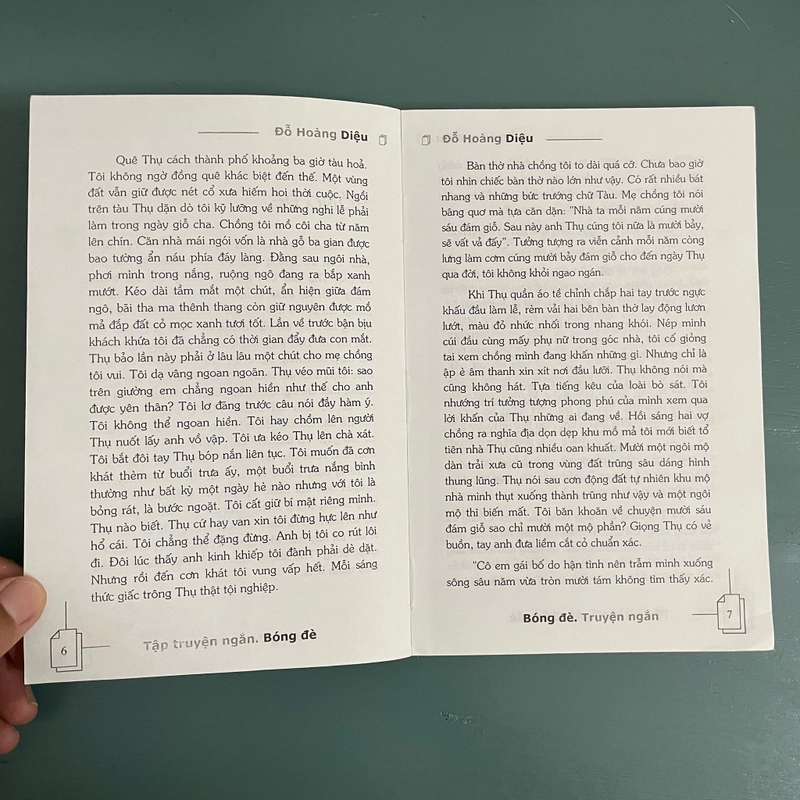 Đỗ Hoàng Diệu
Quê Thụ cách thành phố khoảng ba giờ tàu hoả.
Tôi không ngờ đồng quê khác biệt đến thế. Một vùng
đất vẫn giữ được nét cổ xưa hiếm hoi thời cuộc. Ngồi
trên tàu Thụ dặn dò tôi kỹ lưỡng về những nghi lễ phải
làm trong ngày giỗ cha. Chồng tôi mồ côi cha từ năm
lên chín. Căn nhà mái ngói vốn là nhà gỗ ba gian được
bao tường ẩn náu phía đáy làng. Đằng sau ngôi nhà,
phơi mình trong nắng, ruộng ngô đang ra bắp xanh
mướt. Kéo dài tầm mắt một chút, ẩn hiện giữa đám
ngô, bãi tha ma thênh thang còn giữ nguyên được mồ
mả đắp đất cỏ mọc xanh tươi tốt. Lần về trước bận bịu
khách khứa tôi đã chẳng có thời gian đẩy đưa con mắt.
Thụ bảo lần này phải ở lâu lâu một chút cho mẹ chồng
tôi vui. Tôi dạ vâng ngoan ngoãn. Thụ véo mũi tôi: sao
trên giường em chẳng ngoan hiền như thế cho anh
được yên thân? Tôi lơ đãng trước câu nói đầy hàm ý.
Tôi không thể ngoan hiền. Tôi hay chồm lên người
Thụ nuốt lấy anh vồ vập. Tôi ưa kéo Thụ lên chà xát.
Tôi bắt đôi tay Thụ bóp nắn liên tục. Tôi muốn đã cơn
khát thèm từ buổi trưa ấy, một buổi trưa nắng bình
thường như bất kỳ một ngày hè nào nhưng với tôi là
bỏng rát, là bước ngoặt. Tôi cất giữ bí mật riêng mình.
Thụ nào biết. Thụ cứ hay van xin tôi đừng hực lên như
hổ cái. Tôi chẳng thể đặng đừng. Anh bị tôi co rút lôi
đi. Đôi lúc thấy anh kinh khiếp tôi đành phải dè dặt.
Nhưng rồi đến cơn khát tôi vung vấp hết. Mỗi sáng
thức giấc trông Thụ thật tội nghiệp.
6
Tập truyện ngắn. Bóng đè
Đỗ Hoàng Diệu
Bàn thờ nhà chồng tôi to dài quá cỡ. Chưa bao giờ
tôi nhìn chiếc bàn thờ nào lớn như vậy. Có rất nhiều bát
nhang và những bức trướng chữ Tàu. Mẹ chồng tôi nói
bâng quơ mà tựa căn dặn: "Nhà ta mỗi năm cúng mười
sáu đám giỗ. Sau này anh Thụ cúng tôi nữa là mười bảy,
sẽ vất vả đấy". Tưởng tượng ra viễn cảnh mỗi năm còng
lưng làm cơm cúng mười bảy đám giỗ cho đến ngày Thụ
qua đời, tôi không khỏi ngao ngán.
Khi Thụ quần áo tề chỉnh chắp hai tay trước ngực
khấu đầu làm lễ, rèm vải hai bên bàn thờ lay động lươn
lướt, màu đỏ nhức nhối trong nhang khói. Nép mình
cúi đầu cùng mấy phụ nữ trong góc nhà, tôi cố giỏng
tai xem chồng mình đang khấn những gì. Nhưng chỉ là
ập è âm thanh xin xít nơi đầu lưỡi. Thụ không nói mà
cũng không hát. Tựa tiếng kêu của loài bò sát. Tôi
nhướng trí tưởng tượng phong phú của mình xem qua
lời khấn của Thụ những ai đang về. Hồi sáng hai vợ
chồng ra nghĩa địa dọn dẹp khu mồ mả tôi mới biết tổ
tiên nhà Thụ cũng nhiều oan khuất. Mười một ngôi mộ
dàn trải xưa cũ trong vùng đất trũng sâu dáng hình
thung lũng. Thụ nói sau cơn động đất tự nhiên khu mộ
nhà mình thụt xuống thành trũng như vậy và một ngôi
mộ thì biến mất. Tôi băn khoăn về chuyện mười sáu
đám giỗ sao chỉ mười một mộ phần? Giọng Thụ có vẻ
buồn, tay anh đưa liềm cắt cỏ chuẩn xác.
"Cô em gái bố do hận tình nên trẫm mình xuống
sông sâu năm vừa tròn mười tám không tìm thấy xác.
Bóng đè. Truyện ngắn
7